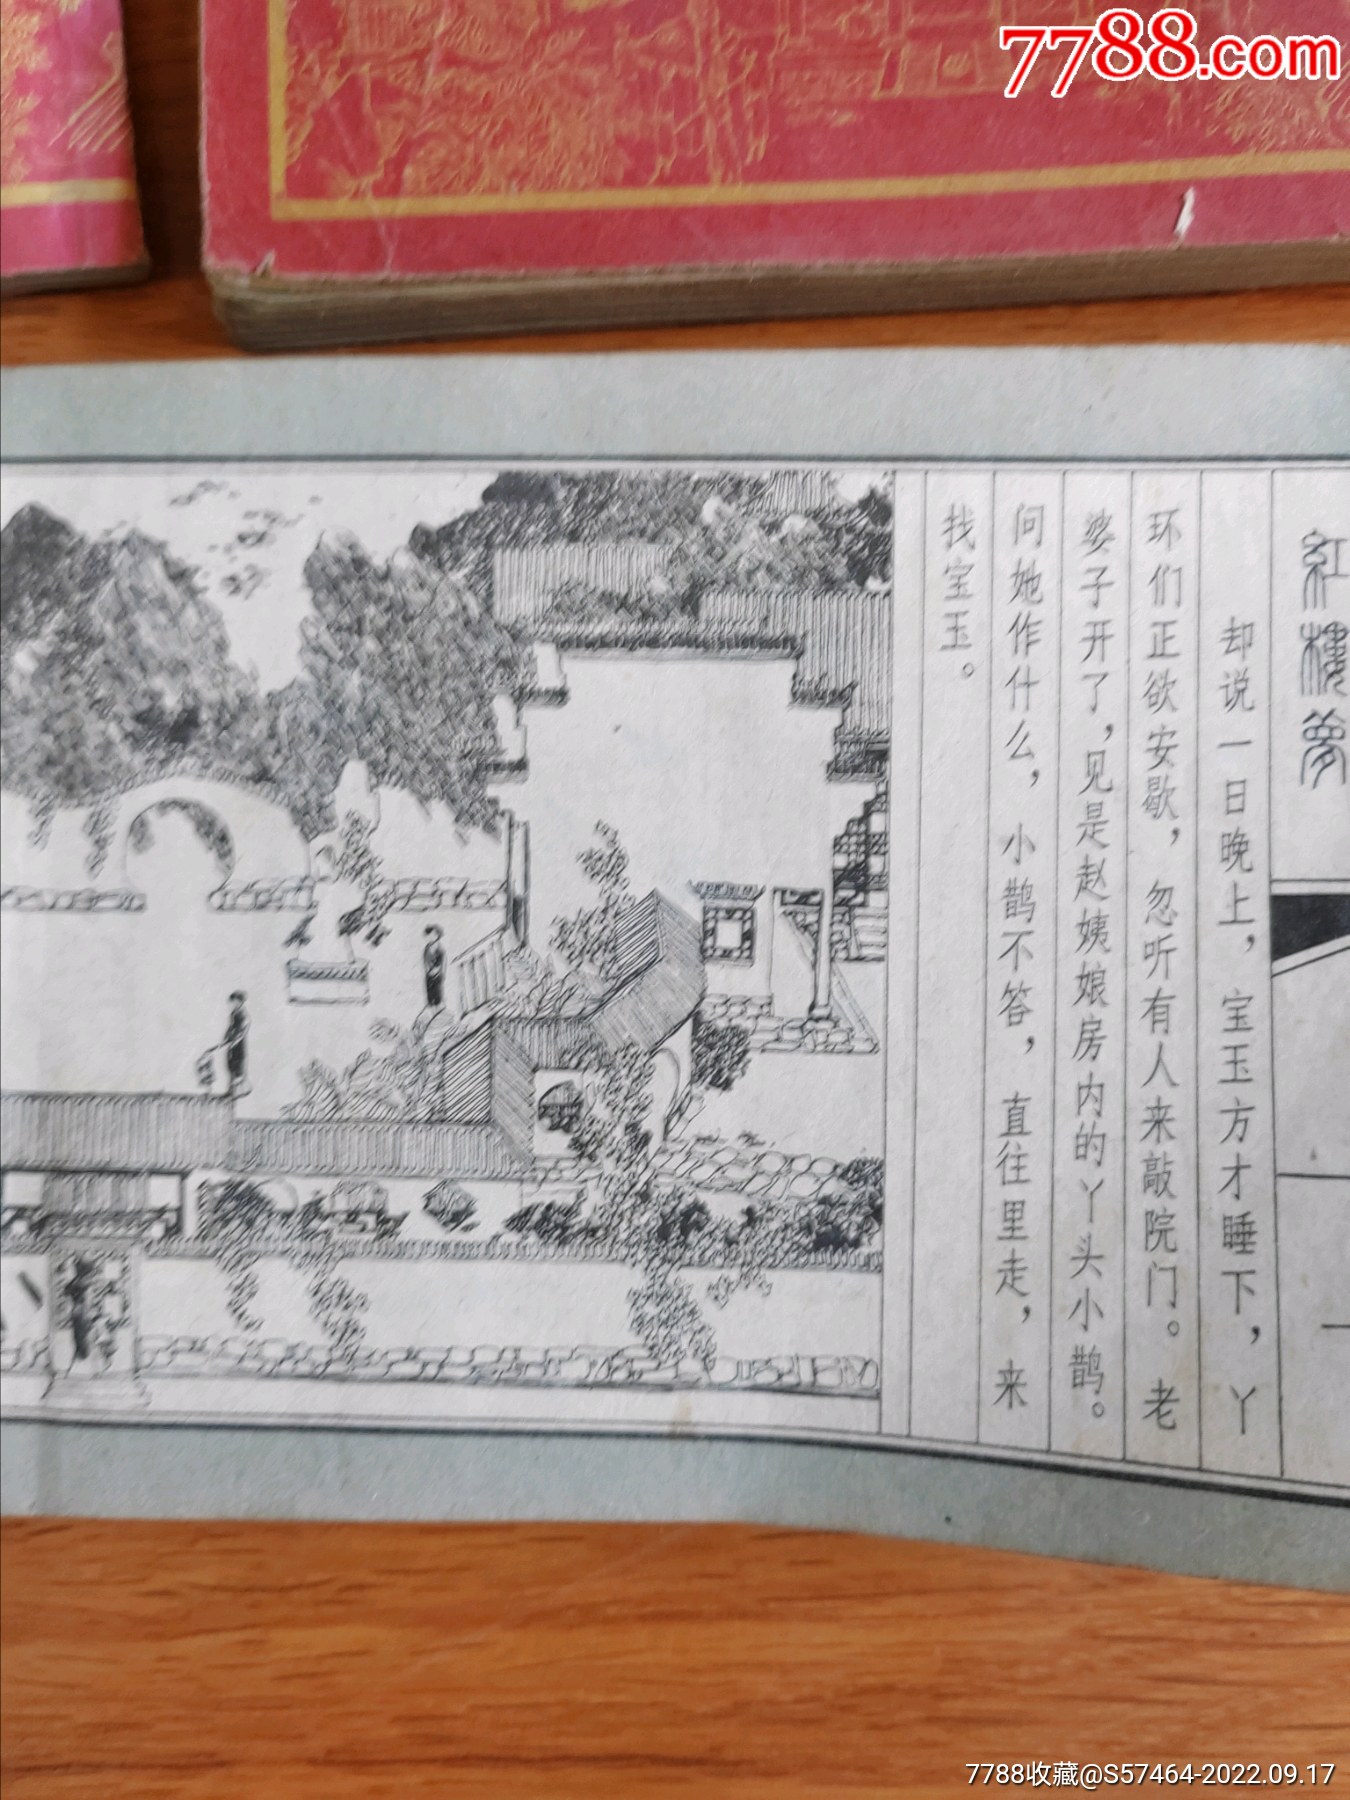 7788.com
红楼梦
却说一日晚上，宝玉方才睡下，丫
环们正欲安歇，忽听有人来敲院门。老
婆子开了，见是赵姨娘房内的丫头小鹊。
问她作什么，小鹊不答，直往里走，来
找宝玉。
7788收藏@S57464-2022.09.17